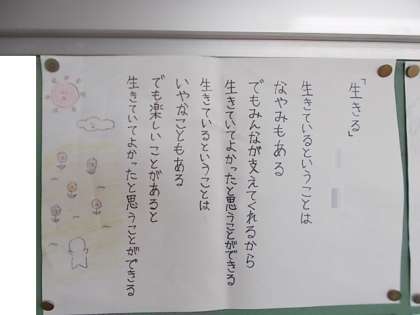 「生きる」
生きているということは
なやみもある
でもみんなが支えてくれるから
生きていてよかったと思うことができる
生きているということは
いやなこともある
でも楽しいことがあると
生きていてよかったと思うことができる